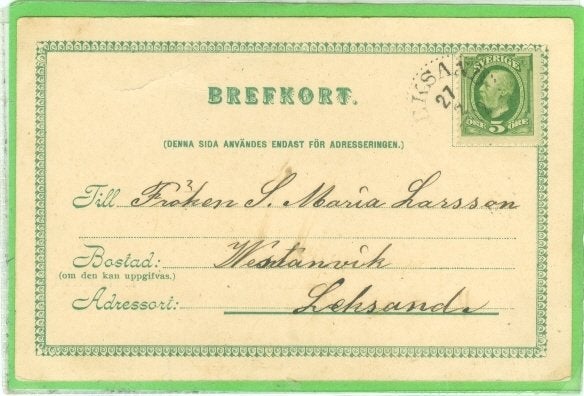 BREFKORT.
SVERIGE
EKSA
27
ÖRE 5 ÖRE
(DENNA SIDA ANVÄNDES ENDAST FÖR ADRESSERINGEN.)
Till Fröken S. Maria Larsson
Bostad: Westanvik
(om den kan uppgifvas.)
Adressort: Leksand